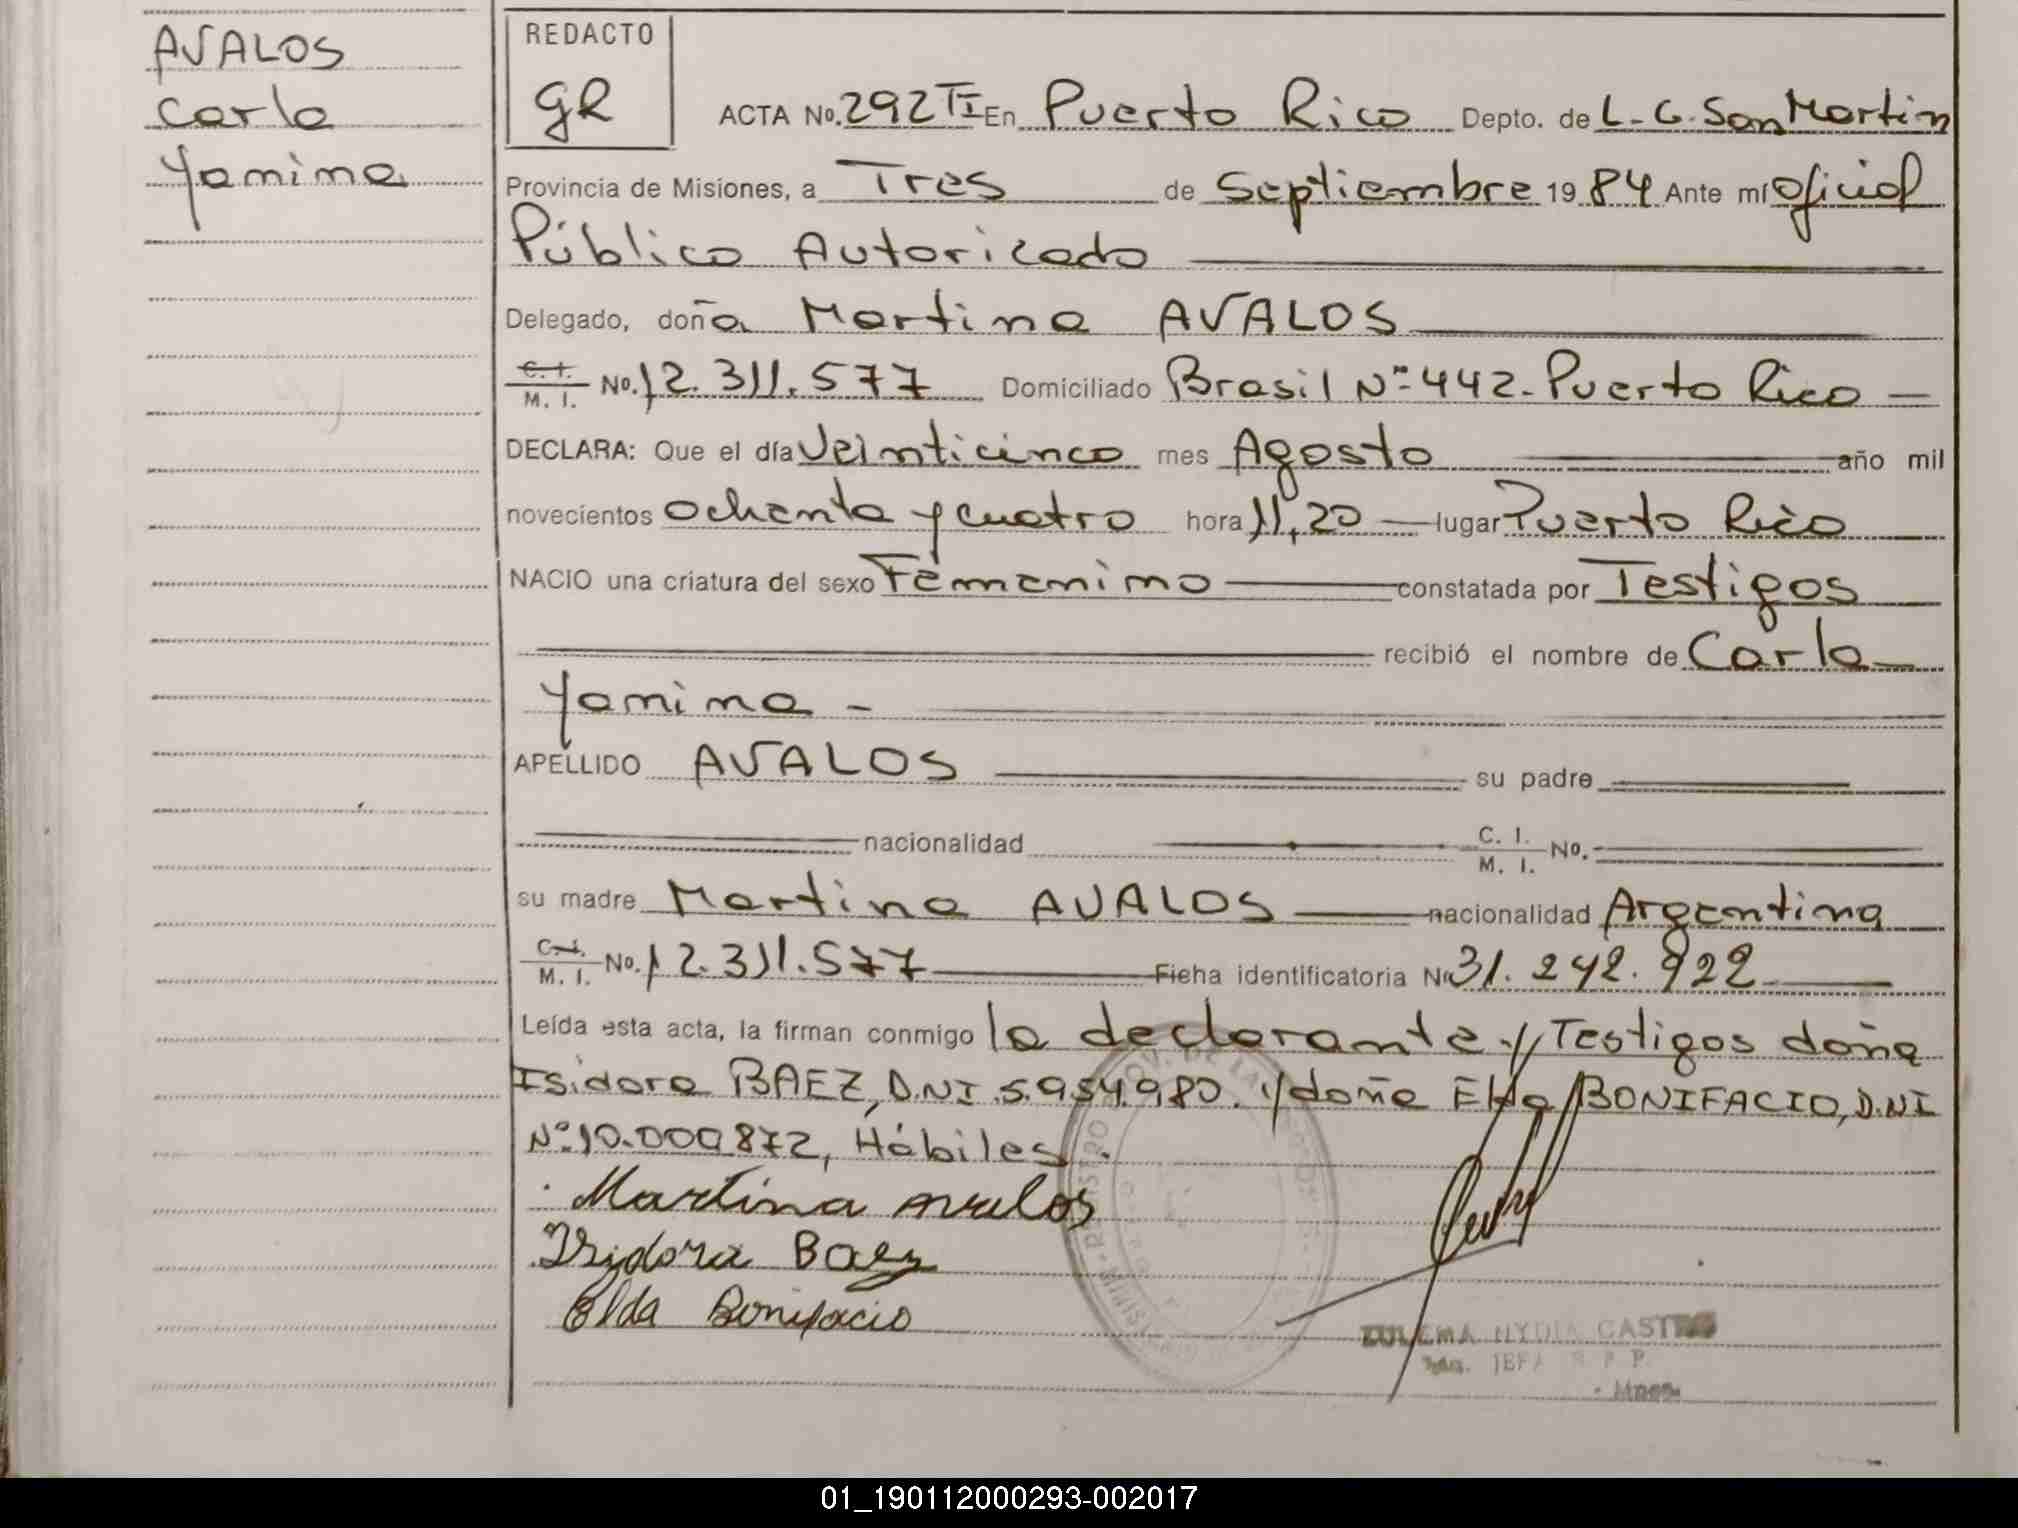 AVALOS
Carla
Yamina
REDACTO
GR
ACTA No. 292 TI En Puerto Rico Depto. de L. G. San Martin
Provincia de Misiones, a Tres de Septiembre 1984 Ante mí Oficial
Público Autorizado
Delegado, doña Martina AVALOS
C. I. / M. I. No. 12.311.577 Domiciliado Brasil Nº 442 - Puerto Rico
DECLARA: Que el día Veinticinco mes Agosto año mil
novecientos ochenta y cuatro hora 11,20 lugar Puerto Rico
NACIO una criatura del sexo Femenino constatada por Testigos
recibió el nombre de Carla
Yamina -
APELLIDO AVALOS su padre
nacionalidad C. I. / M. I. No.
su madre Martina AVALOS nacionalidad Argentina
C. I. / M. I. No. 12.311.577 Ficha identificatoria No 31.242.922
Leída esta acta, la firman conmigo la declarante y Testigos doña
Isidora BAEZ, D.N.I. 5.954.980. y doña Elda BONIFACIO, D.N.I
Nº 10.000.872, Hábiles.
Martina avalos
Isidora Baez
Elda Bonifacio
ZULEMA NYDIA CASTRO
JEFA
01_190112000293-002017